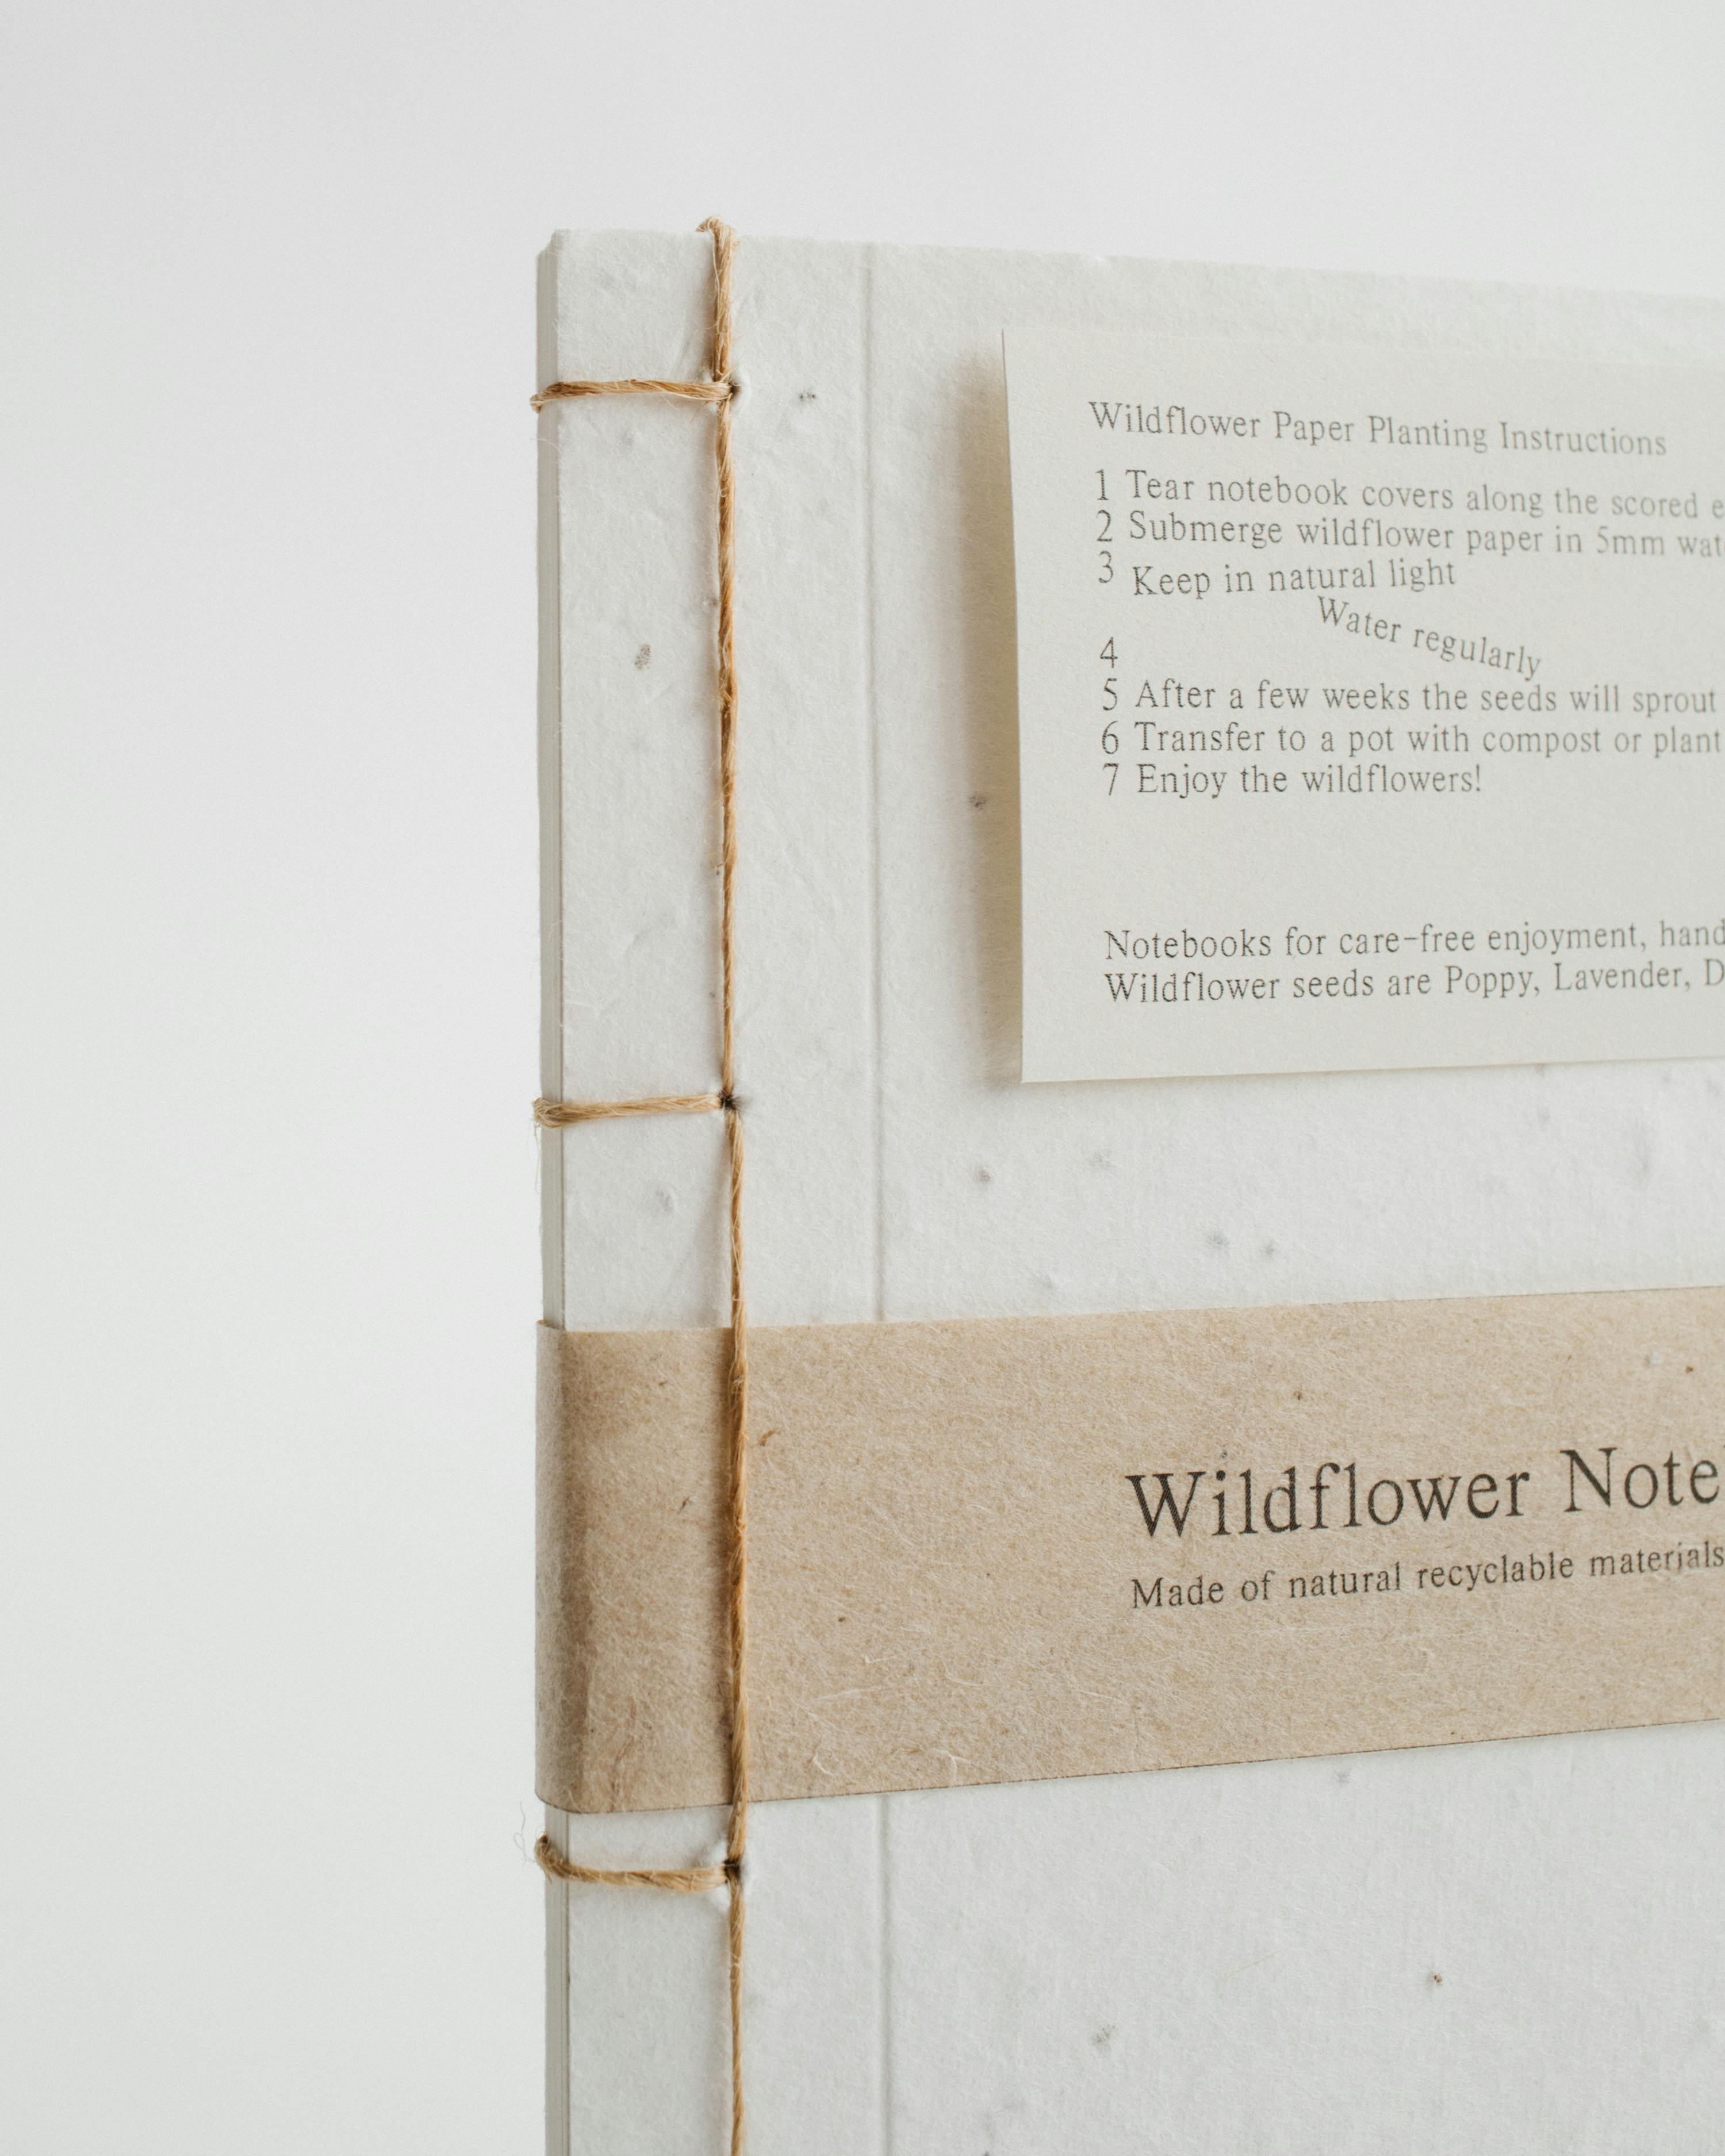 Wildflower Paper Planting Instructions
1 Tear notebook covers along the scored
2 Submerge wildflower paper in 5mm
3 Keep in natural light
4 Water regularly
5 After a few weeks the seeds will sprout
6 Transfer to a pot with compost or plant
7 Enjoy the wildflowers!
Notebooks for care-free enjoyment,
Wildflower seeds are Poppy, Lavender,
Wildflower
Made of natural recyclable materials